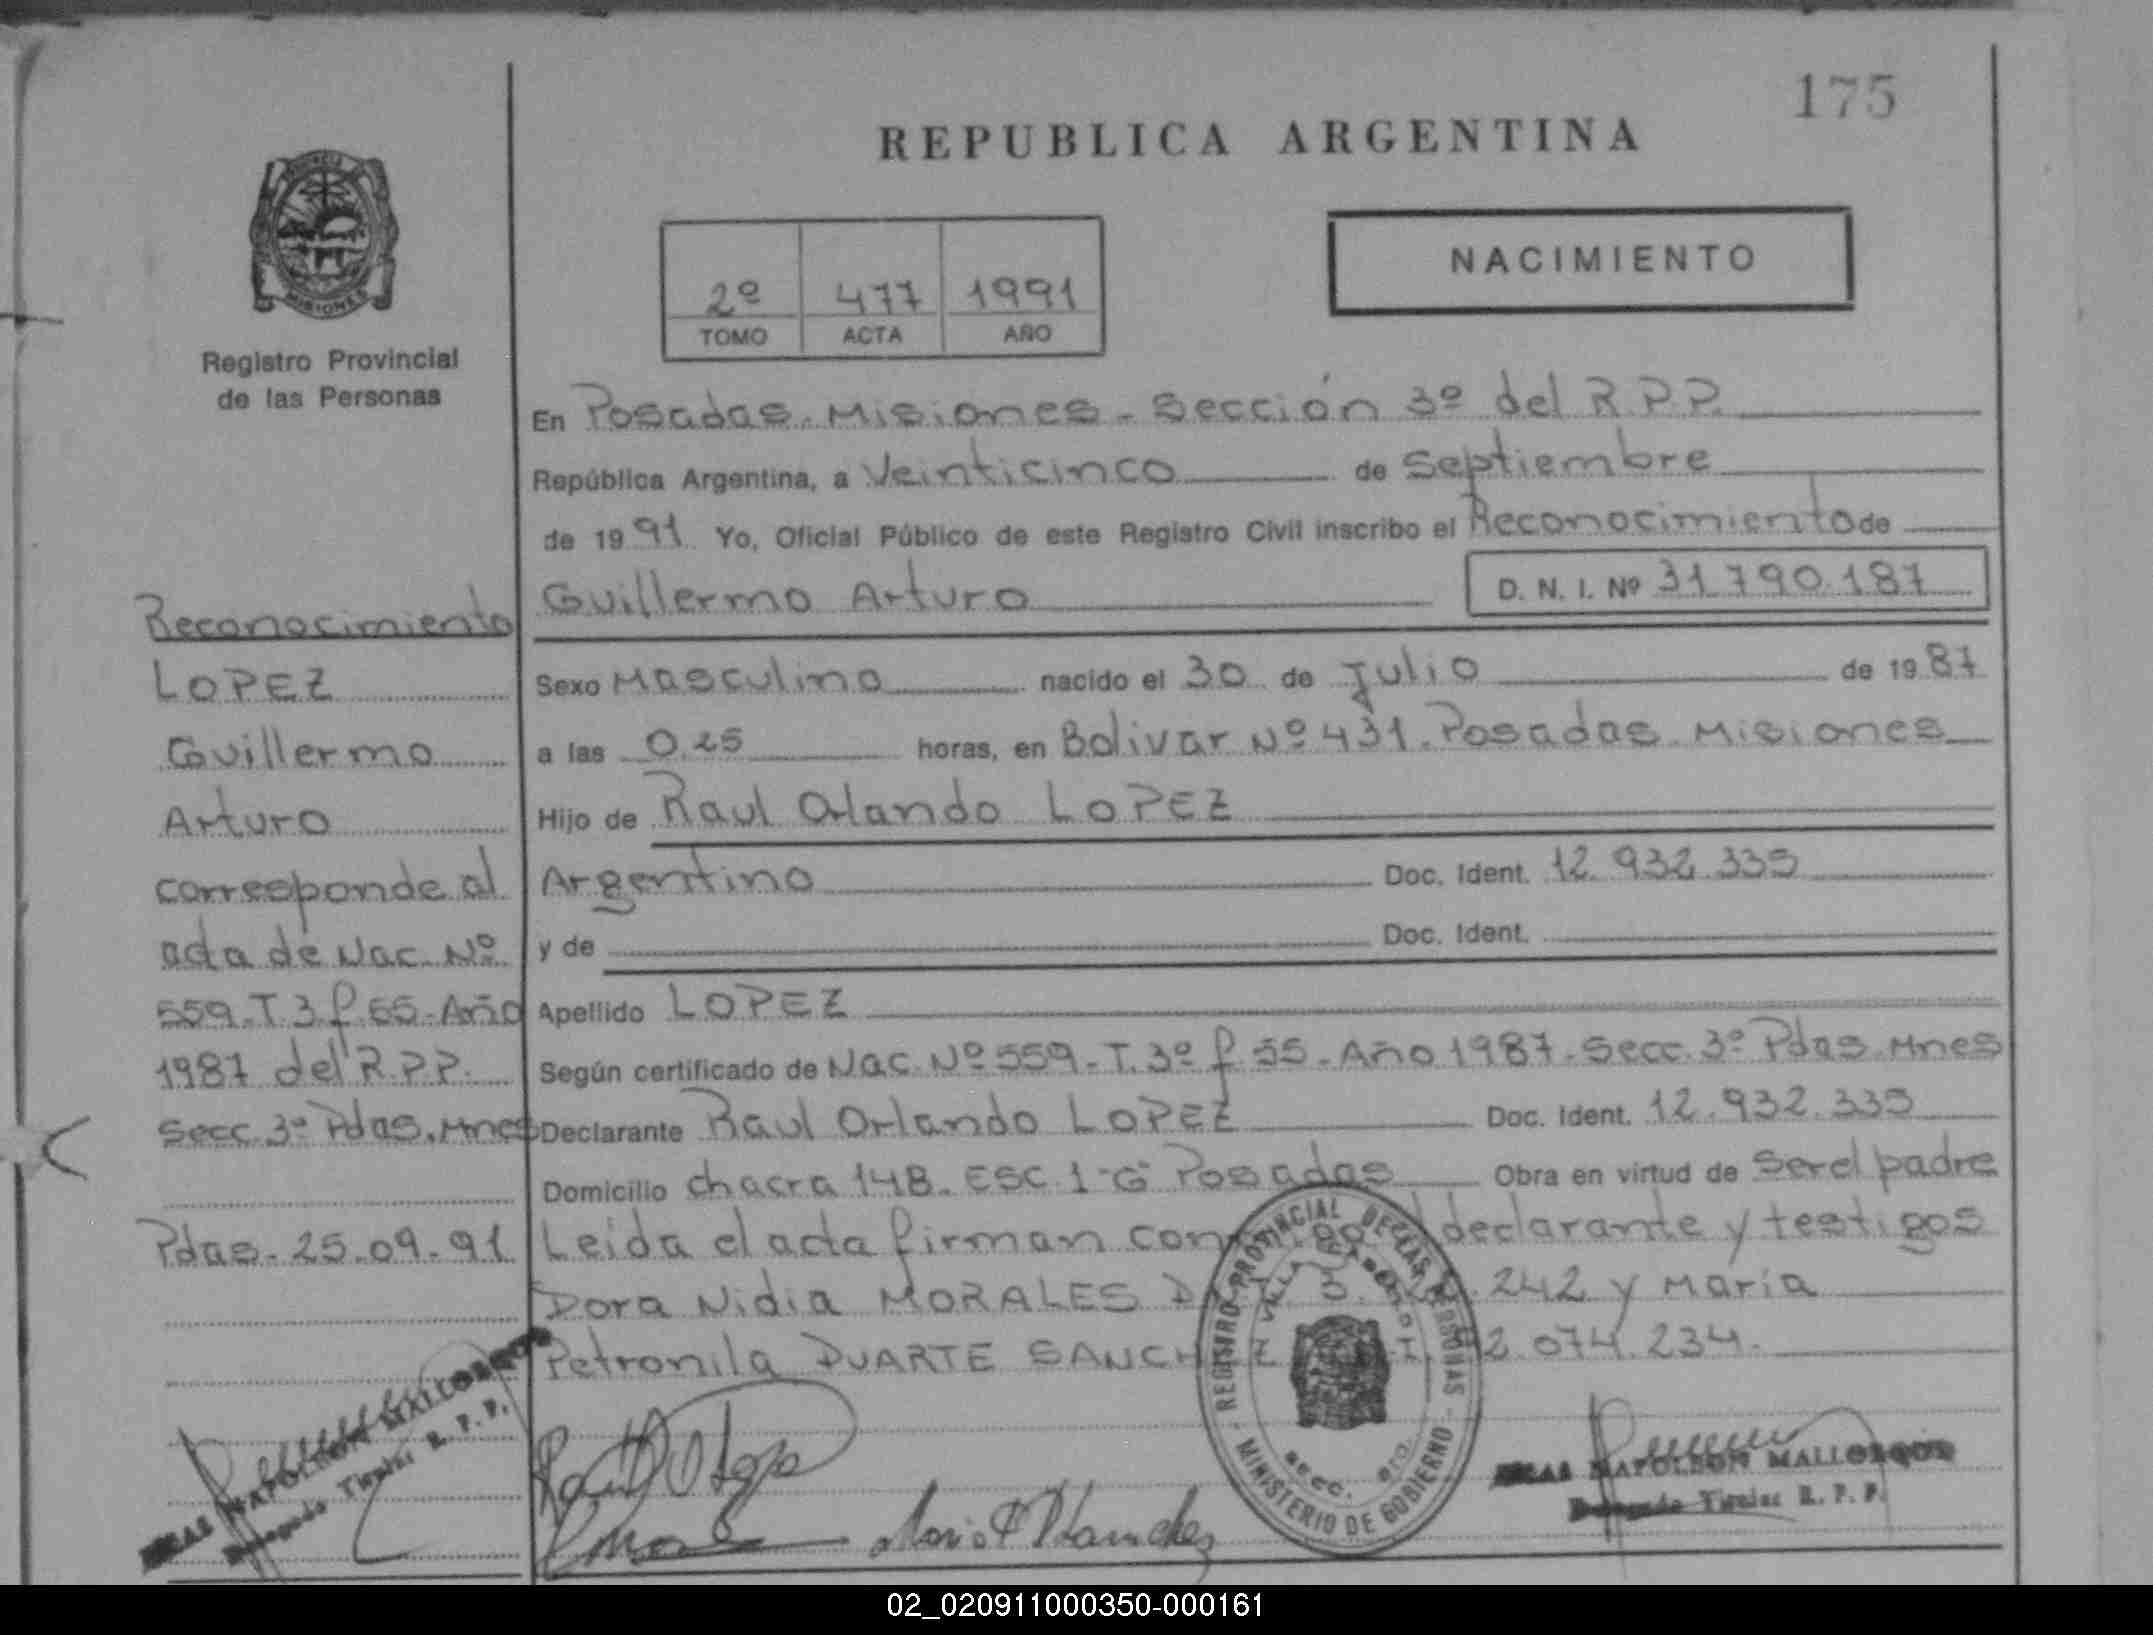 175
REPUBLICA ARGENTINA
NACIMIENTO
2º 477 1991
TOMO ACTA AÑO
MISIONES
Registro Provincial
de las Personas
En Posadas. Misiones - Sección 3º del R.P.P.
República Argentina, a Veinticinco de Septiembre
de 1991 Yo, Oficial Público de este Registro Civil inscribo el Reconocimiento de
Guillermo Arturo D. N. I. Nº 31.790.187
Sexo Masculino nacido el 30 de Julio de 1987
a las 0.25 horas, en Bolivar Nº 431. Posadas. Misiones
Hijo de Raul Orlando LOPEZ
Argentino Doc. Ident. 12.932.335
y de Doc. Ident.
Apellido LOPEZ
Según certificado de Nac. Nº 559 - T. 3º f 55 - Año 1987 - Secc. 3º Pdas. Mnes
Declarante Raul Orlando LOPEZ Doc. Ident. 12.932.335
Domicilio chacra 148. ESC. 1-G Posadas Obra en virtud de Ser el padre
Leida el acta firman declarante y testigos
Dora Nidia MORALES 242 y Maria
Petronila DUARTE 2.074.234.
Reconocimiento
LOPEZ
Guillermo
Arturo
corresponde al
acta de Nac. Nº
559 - T. 3 f 55 - Año
1987 del R.P.P.
Secc. 3º Pdas. Mnes
Pdas - 25.09.91
NAPOLEON MALLORQUIN
Delegado Titular R. P. P.
REGISTRO PROVINCIAL DE LAS PERSONAS
MINISTERIO DE GOBIERNO
NAPOLEON MALLORQUIN
Delegado Titular R. P. P.
02_020911000350-000161